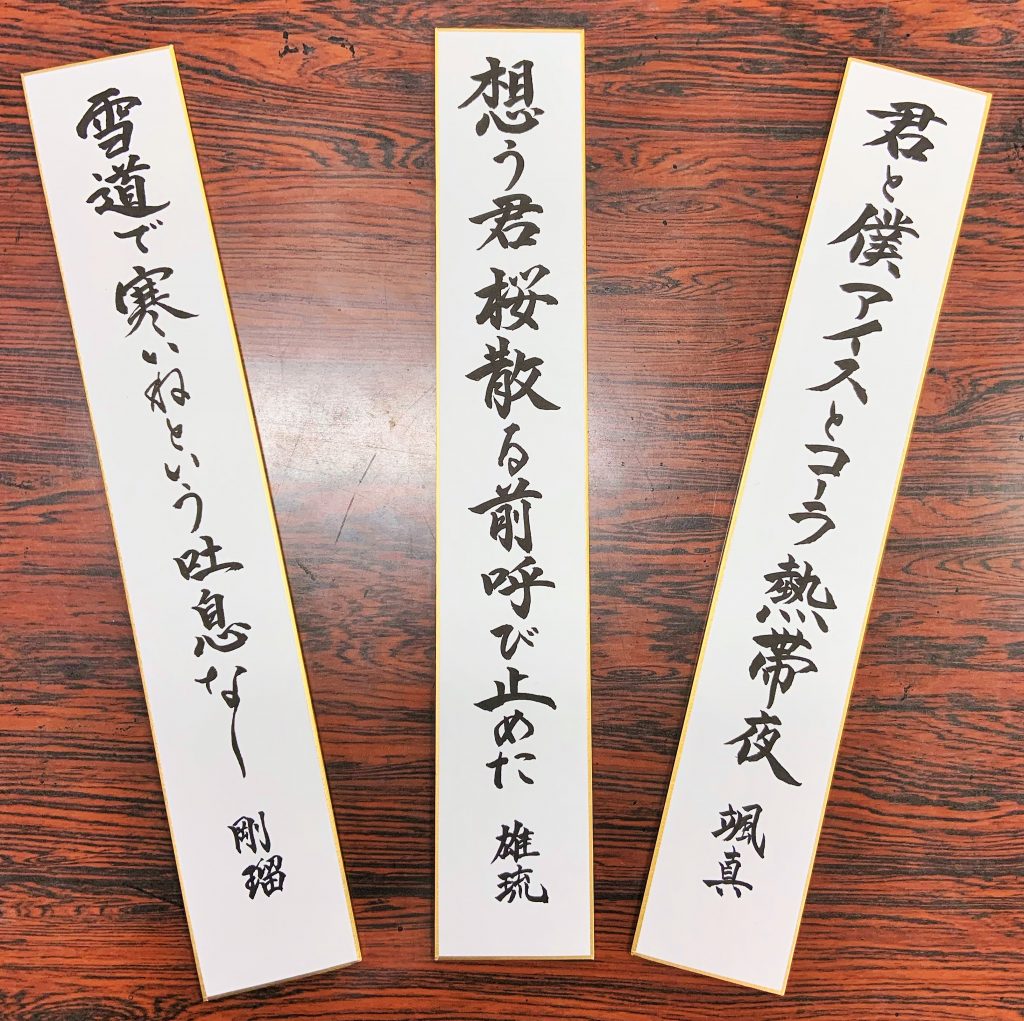 君と僕アイスとコーラ熱帯夜
颯真
想う君桜散る前呼び止めた
雄琉
雪道で寒いねという吐息なし
剛瑠